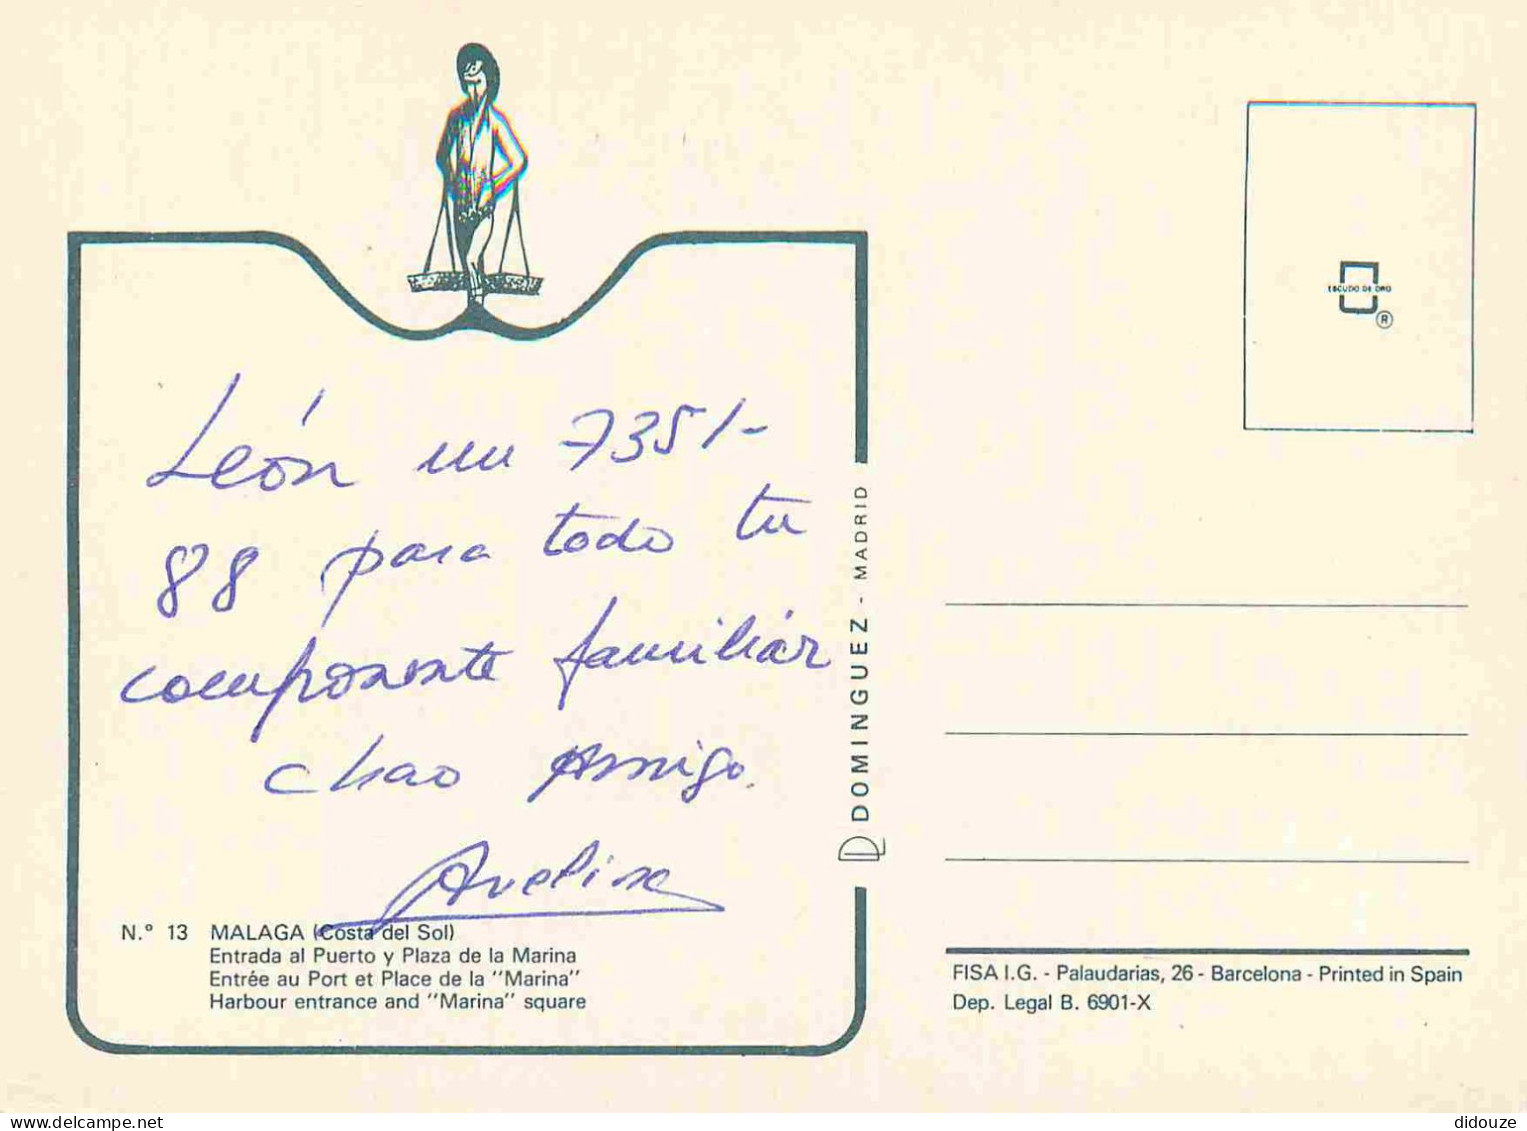 León un 735/-
88 para todo tu
componente familiár
chao Amigo.
Avelino
N.° 13 MALAGA (Costa del Sol)
Entrada al Puerto y Plaza de la Marina
Entrée au Port et Place de la "Marina"
Harbour entrance and "Marina" square
DOMINGUEZ - MADRID
ESCUDO DE ORO
®
FISA I.G. - Palaudarias, 26 - Barcelona - Printed in Spain
Dep. Legal B. 6901-X
didouze